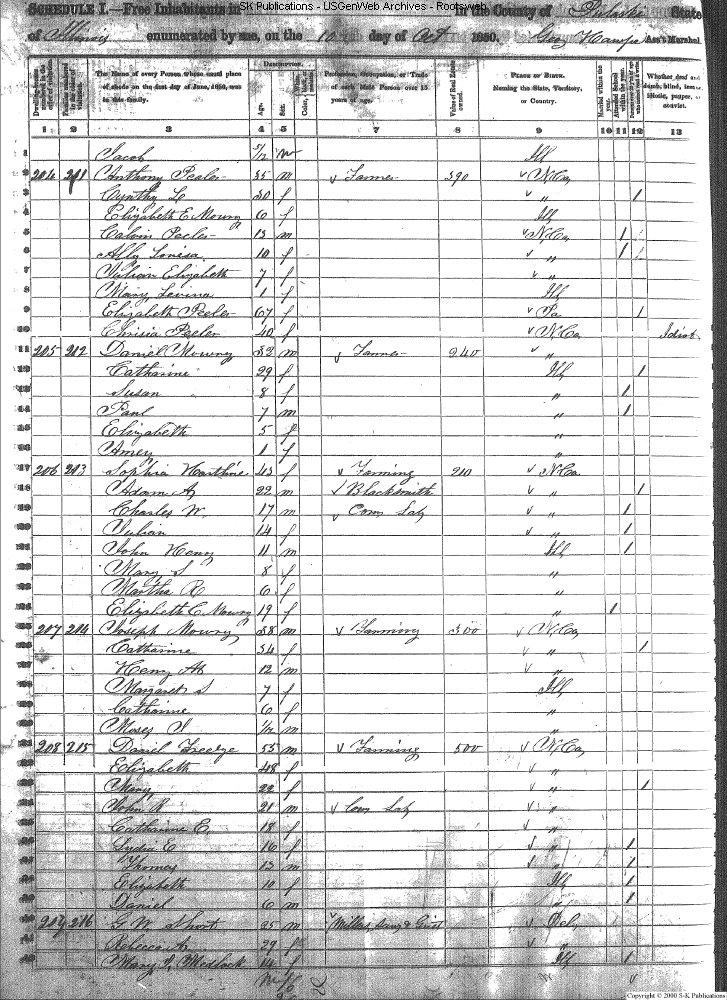 SK Publications - USGenWeb Archives - Rootsweb
SCHEDULE I.—Free Inhabitants in in the County of Pulaski State
of Illinois enumerated by me, on the 10 day of Oct 1850. Ass't Marshal.
DESCRIPTION.
The Name of every Person whose usual place of abode on the first day of June, 1850, was in this family.
Age. Sex.
Profession, Occupation, or Trade of each Male Person over 15 years of age.
Value of Real Estate owned.
PLACE OF BIRTH. Naming the State, Territory, or Country.
Married within the year.
Whether deaf and dumb, blind, insane, idiotic, pauper, or convict.
1 2 3 4 5 6 7 8 9 10 11 12 13
1 Jacob 5/12 m Ill
2 204 211 Anthony Peeler 35 m Farmer 390 N.Ca
3 Cyntha L 30 f " 1
4 Elizabeth E Mowry 6 f Ill
5 Calvin Peeler 13 m N.Ca 1
6 Ally Lovisa 10 f " 1
7 Elizabeth 7 f "
8 Mary Levina 1 f Ill
9 Elizabeth Peeler 67 f Pa 1
10 Peeler 40 f N.Ca Idiot
11 205 212 Daniel Mowry 32 m Farmer 240 "
12 Catharine 29 f Ill 1
13 Susan 8 f " 1
14 Paul 7 m " 1
15 Elizabeth 5 f "
16 Amey 1 f "
17 206 213 Sophia Hartline 43 f Farming 210 N.Ca
18 Adam A 22 m Blacksmith " 1
19 Charles W. 17 m Com Lab " 1
20 Julian 14 f " 1
21 John Henry 11 m Ill 1
22 Mary S 8 f "
23 Martha R 6 f "
24 Elizabeth C Mowry 19 f " 1
25 207 214 Joseph Mowry 38 m Farming 300 N.Ca
26 Catharine 34 f " 1
27 Henry 12 m "
28 Margaret S 7 f Ill
29 Catharine 6 f "
30 Moses I 1/12 m "
31 208 215 Daniel Freeze 53 m Farming 500 N.Ca
32 Elizabeth 48 f "
33 Mary 22 f " 1
34 John R 21 m Com Lab "
35 Catharine E 18 f "
36 Lydia C 16 f " 1
37 Thomas 13 m " 1
38 Elizabeth 10 f Ill 1
39 Daniel 6 m " 1
40 209 216 G W Short 25 m
41 Rebecca A 29 f "
42 Mary I Medlock 14 f Ill 1
Copyright © 2000 S-K Publications